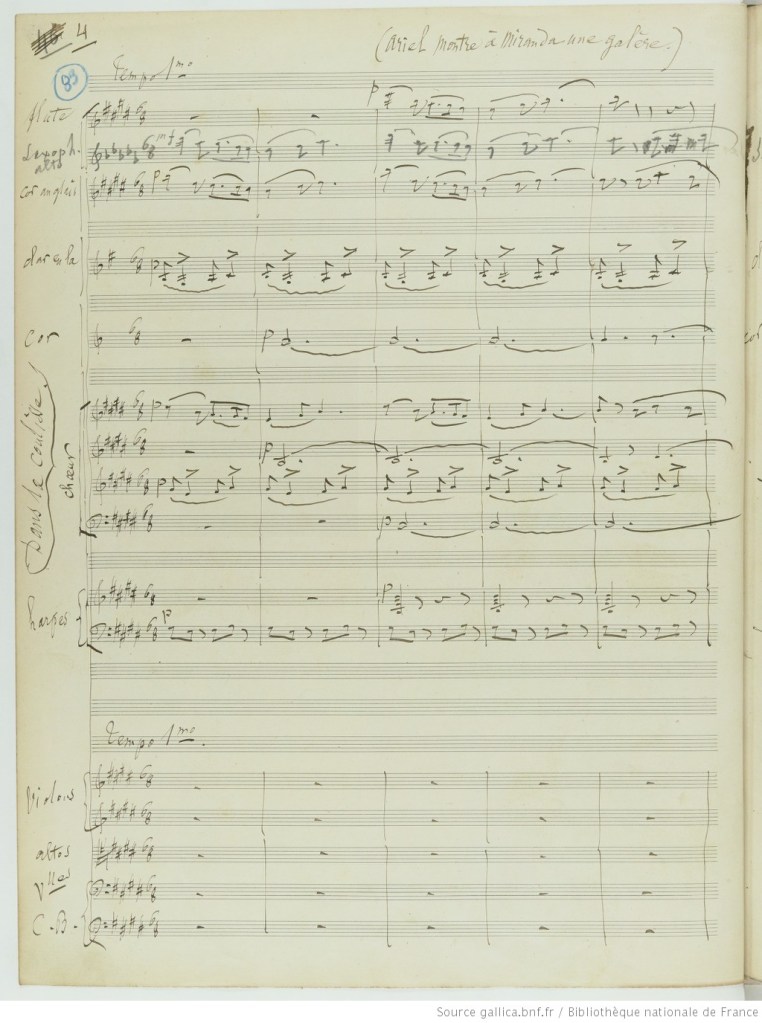 4
(Ariel montre à Miranda une galère.)
Tempo 1mo
83
flute
Saxoph.
alto
mf
p
cor anglais
p
clar en la
p
Cor
p
Dans la coulisse
chœur
p
p
p
p
harpes
p
p
Tempo 1mo.
Violons
altos
Vlles
C-B-
Source gallica.bnf.fr / Bibliothèque nationale de France